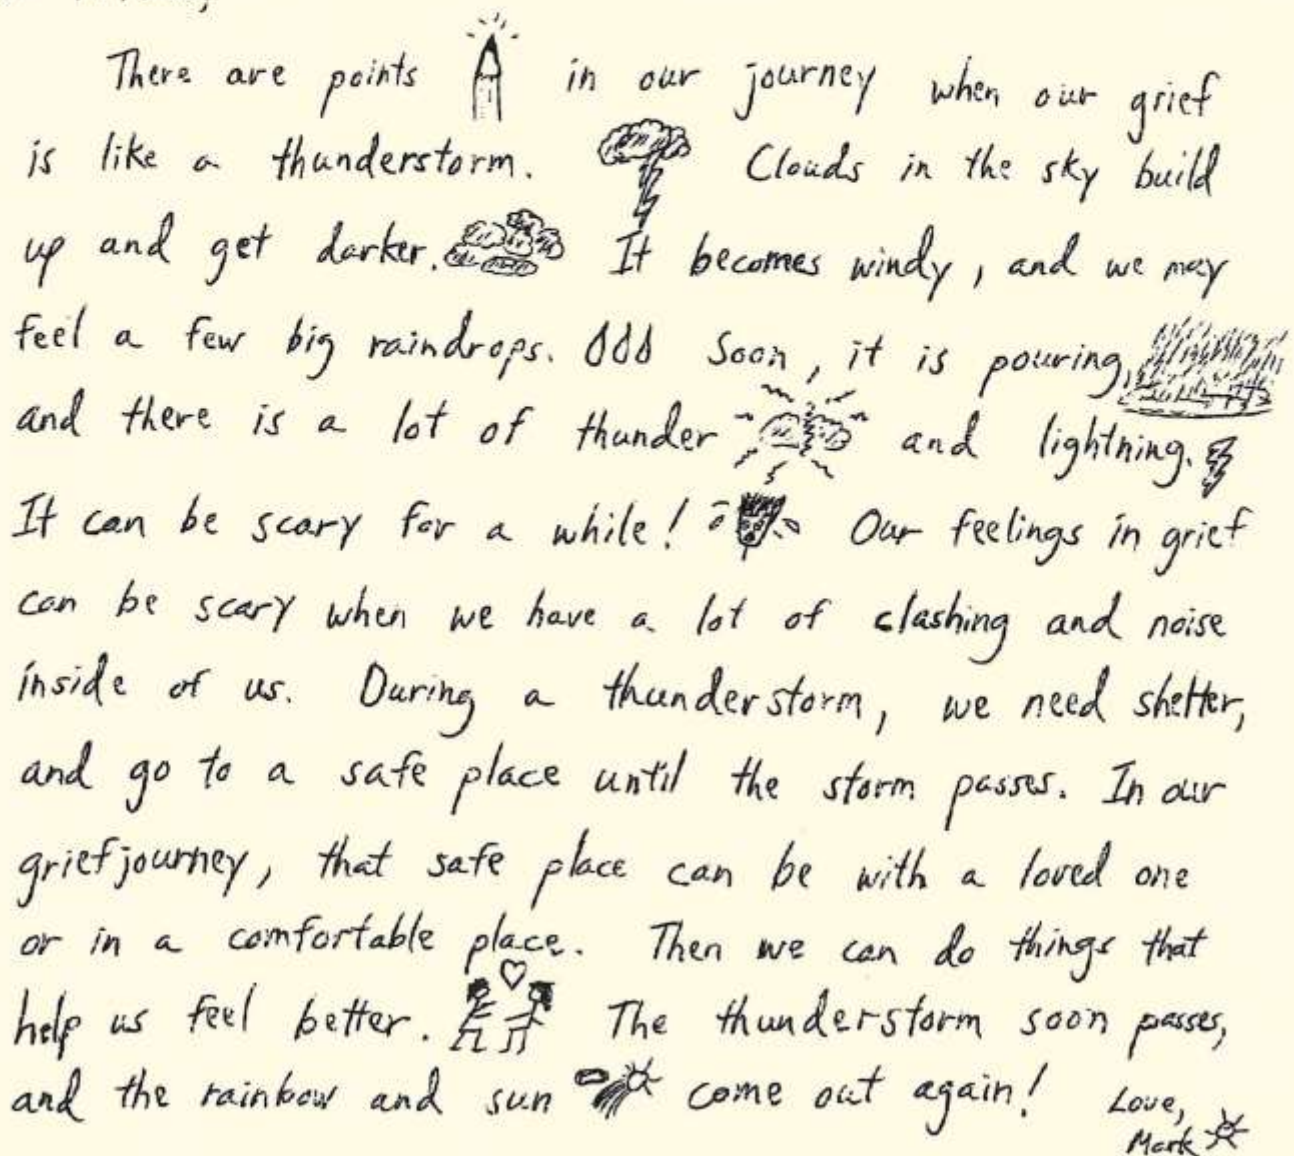 There are points in our journey when our grief
is like a thunderstorm. Clouds in the sky build
up and get darker. It becomes windy, and we may
feel a few big raindrops. Soon, it is pouring,
and there is a lot of thunder and lightning.
It can be scary for a while! Our feelings in grief
can be scary when we have a lot of clashing and noise
inside of us. During a thunderstorm, we need shelter,
and go to a safe place until the storm passes. In our
grief journey, that safe place can be with a loved one
or in a comfortable place. Then we can do things that
help us feel better. The thunderstorm soon passes,
and the rainbow and sun come out again! Love,
Mark